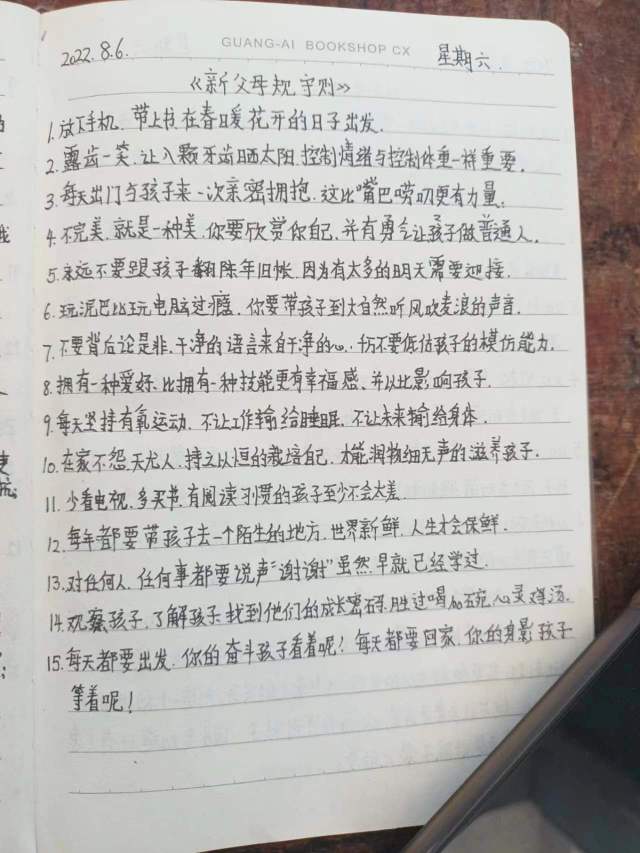 GUANG-AI BOOKSHOP CX
2022.8.6. 星期六
《新父母规守则》
1.放下手机.带上书.在春暖花开的日子出发.
2.露齿一笑.让八颗牙齿晒太阳.控制情绪与控制体重一样重要.
3.每天出门与孩子来一次亲密拥抱.这比嘴巴唠叨更有力量.
4.不完美.就是一种美.你要欣赏你自己.并有勇气让孩子做普通人.
5.永远不要跟孩子翻陈年旧帐.因为有太多的明天需要迎接.
6.玩泥巴比玩电脑过瘾.你要带孩子到大自然听风吹麦浪的声音.
7.不要背后论是非.干净的语言来自干净的心.切不要低估孩子的模仿能力.
8.拥有一种爱好.比拥有一种技能更有幸福感.并以此影响孩子.
9.每天坚持有氧运动.不让工作输给睡眠.不让未来输给身体.
10.在家不怨天尤人.持之以恒的栽培自己.才能润物细无声的滋养孩子.
11.少看电视.多买书.有阅读习惯的孩子至少不会太差
12.每年都要带孩子去一个陌生的地方.世界新鲜.人生才会保鲜.
13.对任何人.任何事都要说声"谢谢"虽然.早就已经学过.
14.观察孩子.了解孩子.找到他们的成长密码.胜过喝加碗心灵鸡汤.
15.每天都要出发.你的奋斗孩子看着呢！每天都要回家.你的身影孩子
等着呢！